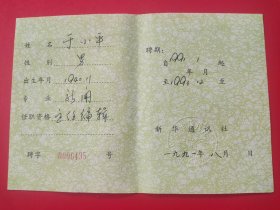 姓名 于小军
性别 男
出生年月 1940.11
专业 新闻
任职资格 主任编辑
聘字 0000435 号
聘期:
自199 . 1 起
年 月
至199 . 12 止
新华通讯社
一九九一年八月 日